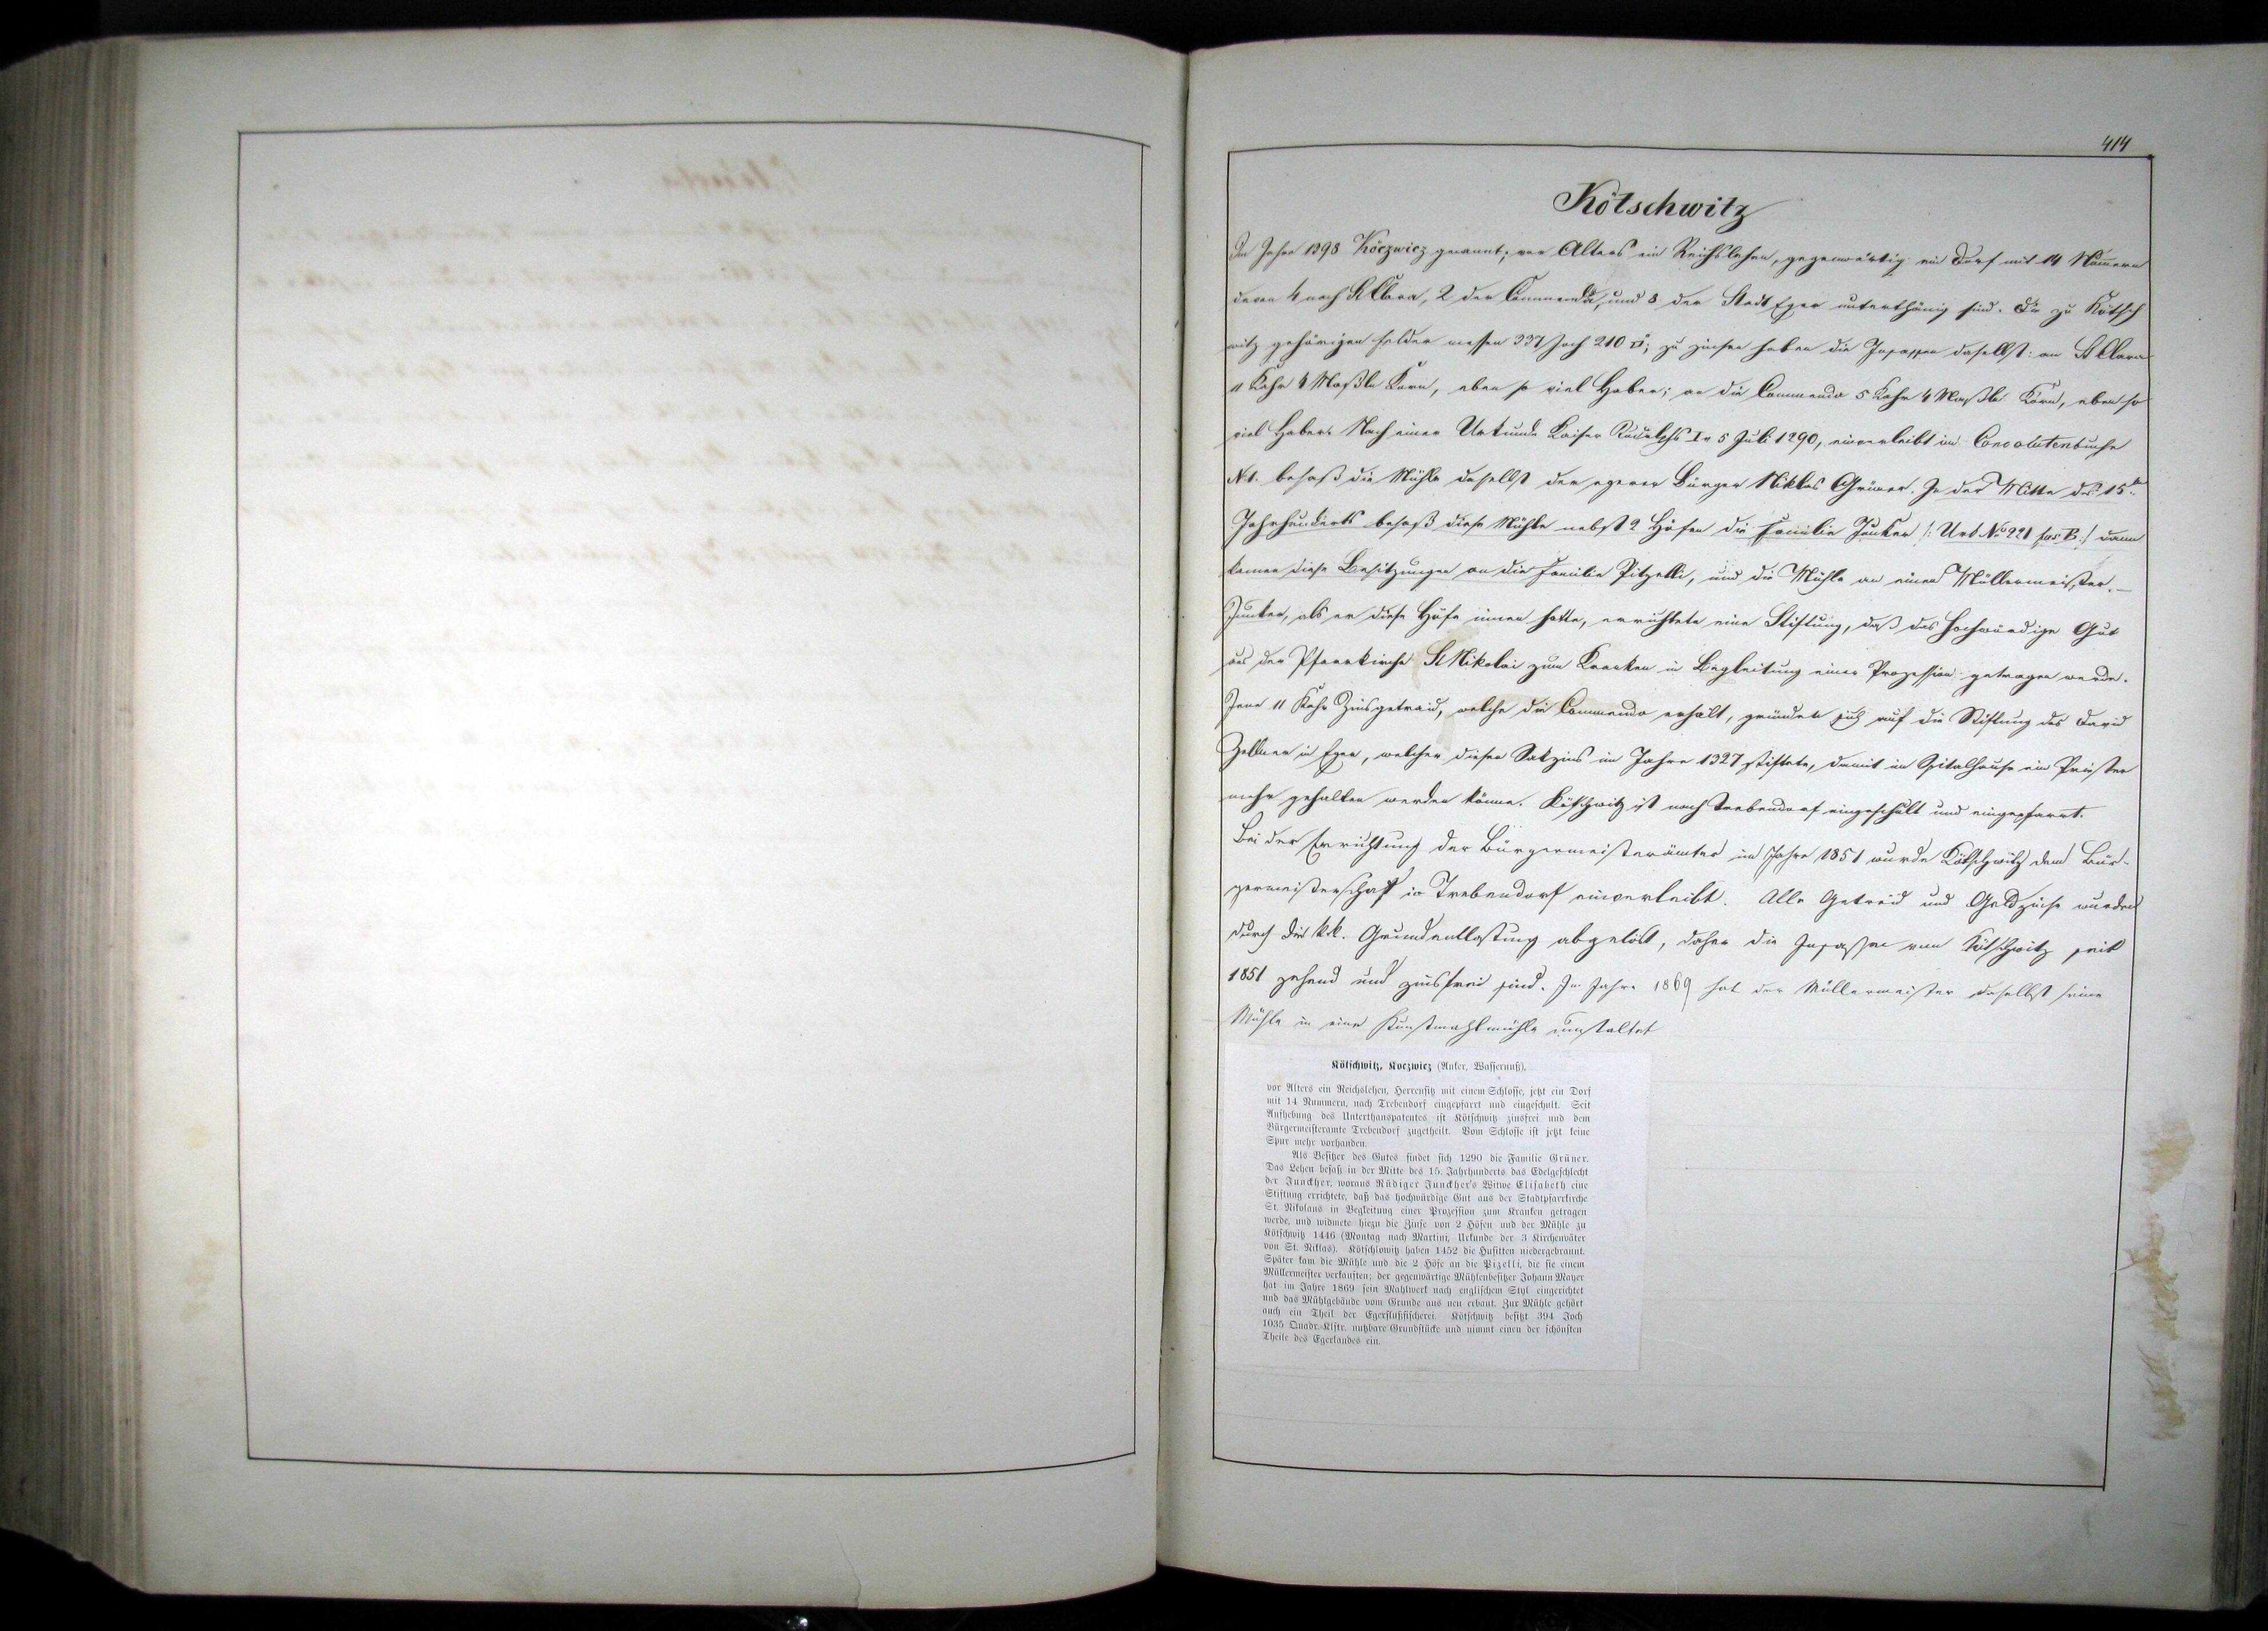 414
Kötschwitz
Im Jahre 1398 Köczwicz genannt, vor Alters ein Reichslehen, gegenwärtig ein Dorf mit 14 Nummern
deren 4 nach St Clara, 2 der Commenda, und 8 der Stadt Eger unterthänig sind. Die zu Kötsch
witz gehörigen Felder messen 337 Joch 210 □°; zu zinsen haben die Insassen daselbst: an St Clara
11 Kahr 4 Maßle Korn, eben so viel Haber; an die Commenda 5 Kahr 4 Maßle Korn, eben so
viel Haber. Nach einer Urkunde Kaiser Rudolphs I v 5 Juli 1290, einverleibt im Convolutenbuche
N. 1. besaß die Mühle daselbst der egerer Bürger Niklas Grüner. In der Mitte des 15ten
Jahrhunderts besaß diese Mühle nebst 2 Höfen die Familie Junker /: Urb No 221 fas B :/ dann
kamen diese Besitzungen an die Familie Pitzelli, und die Mühle an einen Müllermeister. —
Junker, als er diese Höfe innen hatte, errichtete eine Stiftung, daß das hochwürdige Gut
aus der Pfarrkirche St Nikolai zum Kranken in Begleitung einer Prozession getragen werde.
Jene 11 Kahr Zinsgetraid, welche die Commenda erhält, gründen sich auf die Stiftung des David
Zollner in Eger, welcher diesen Sakzins im Jahre 1327 stiftete, damit im Spitalhause ein Priester
mehr gehalten werden könne. Kötschwitz ist nach Trebendorf eingeschult und eingepfarrt.
Bei der Errichtung der Bürgermeisterämter im Jahre 1851 wurde Kötschwitz dem Bür-
germeisterschaft in Trebendorf einverleibt. Alle Getreid und Geldzinse wurden
durch die k.k. Grundentlastung abgelöst, daher die Insassen von Kötschwitz seit
1851 zehend und zinsfrei sind. Im Jahre 1869 hat der Müllermeister daselbst seine
Mühle in eine Kunstmahlmühle umstaltet
Kötschwitz, Koczwicz (Anker, Wassernuß),
vor Alters ein Reichslehen, Herrensitz mit einem Schlosse, jetzt ein Dorf
mit 14 Nummern, nach Trebendorf eingepfarrt und eingeschult. Seit
Aufhebung des Unterthanspatentes ist Kötschwitz zinsfrei und dem
Bürgermeisteramte Trebendorf zugetheilt. Vom Schlosse ist jetzt keine
Spur mehr vorhanden.
Als Besitzer des Gutes findet sich 1290 die Familie Grüner.
Das Lehen besaß in der Mitte des 15. Jahrhunderts das Edelgeschlecht
der Junckher, woraus Rüdiger Junckher's Witwe Elisabeth eine
Stiftung errichtete, daß das hochwürdige Gut aus der Stadtpfarrkirche
St. Nikolaus in Begleitung einer Prozession zum Kranken getragen
werde, und widmete hiezu die Zinse von 2 Höfen und der Mühle zu
Kötschwitz 1446 (Montag nach Martini, Urkunde der 3 Kirchenväter
von St. Niklas). Kötschlowitz haben 1452 die Husitten niedergebrannt.
Später kam die Mühle und die 2 Höfe an die Pizelli, die sie einem
Müllermeister verkauften; der gegenwärtige Mühlenbesitzer Johann Mayer
hat im Jahre 1869 sein Mahlwerk nach englischem Styl eingerichtet
und das Mühlgebäude vom Grunde aus neu erbaut. Zur Mühle gehört
auch ein Theil der Egerflußfischerei. Kötschwitz besitzt 394 Joch
1035 Quadr.-Klftr. nutzbare Grundstücke und nimmt einen der schönsten
Theile des Egerlandes ein.